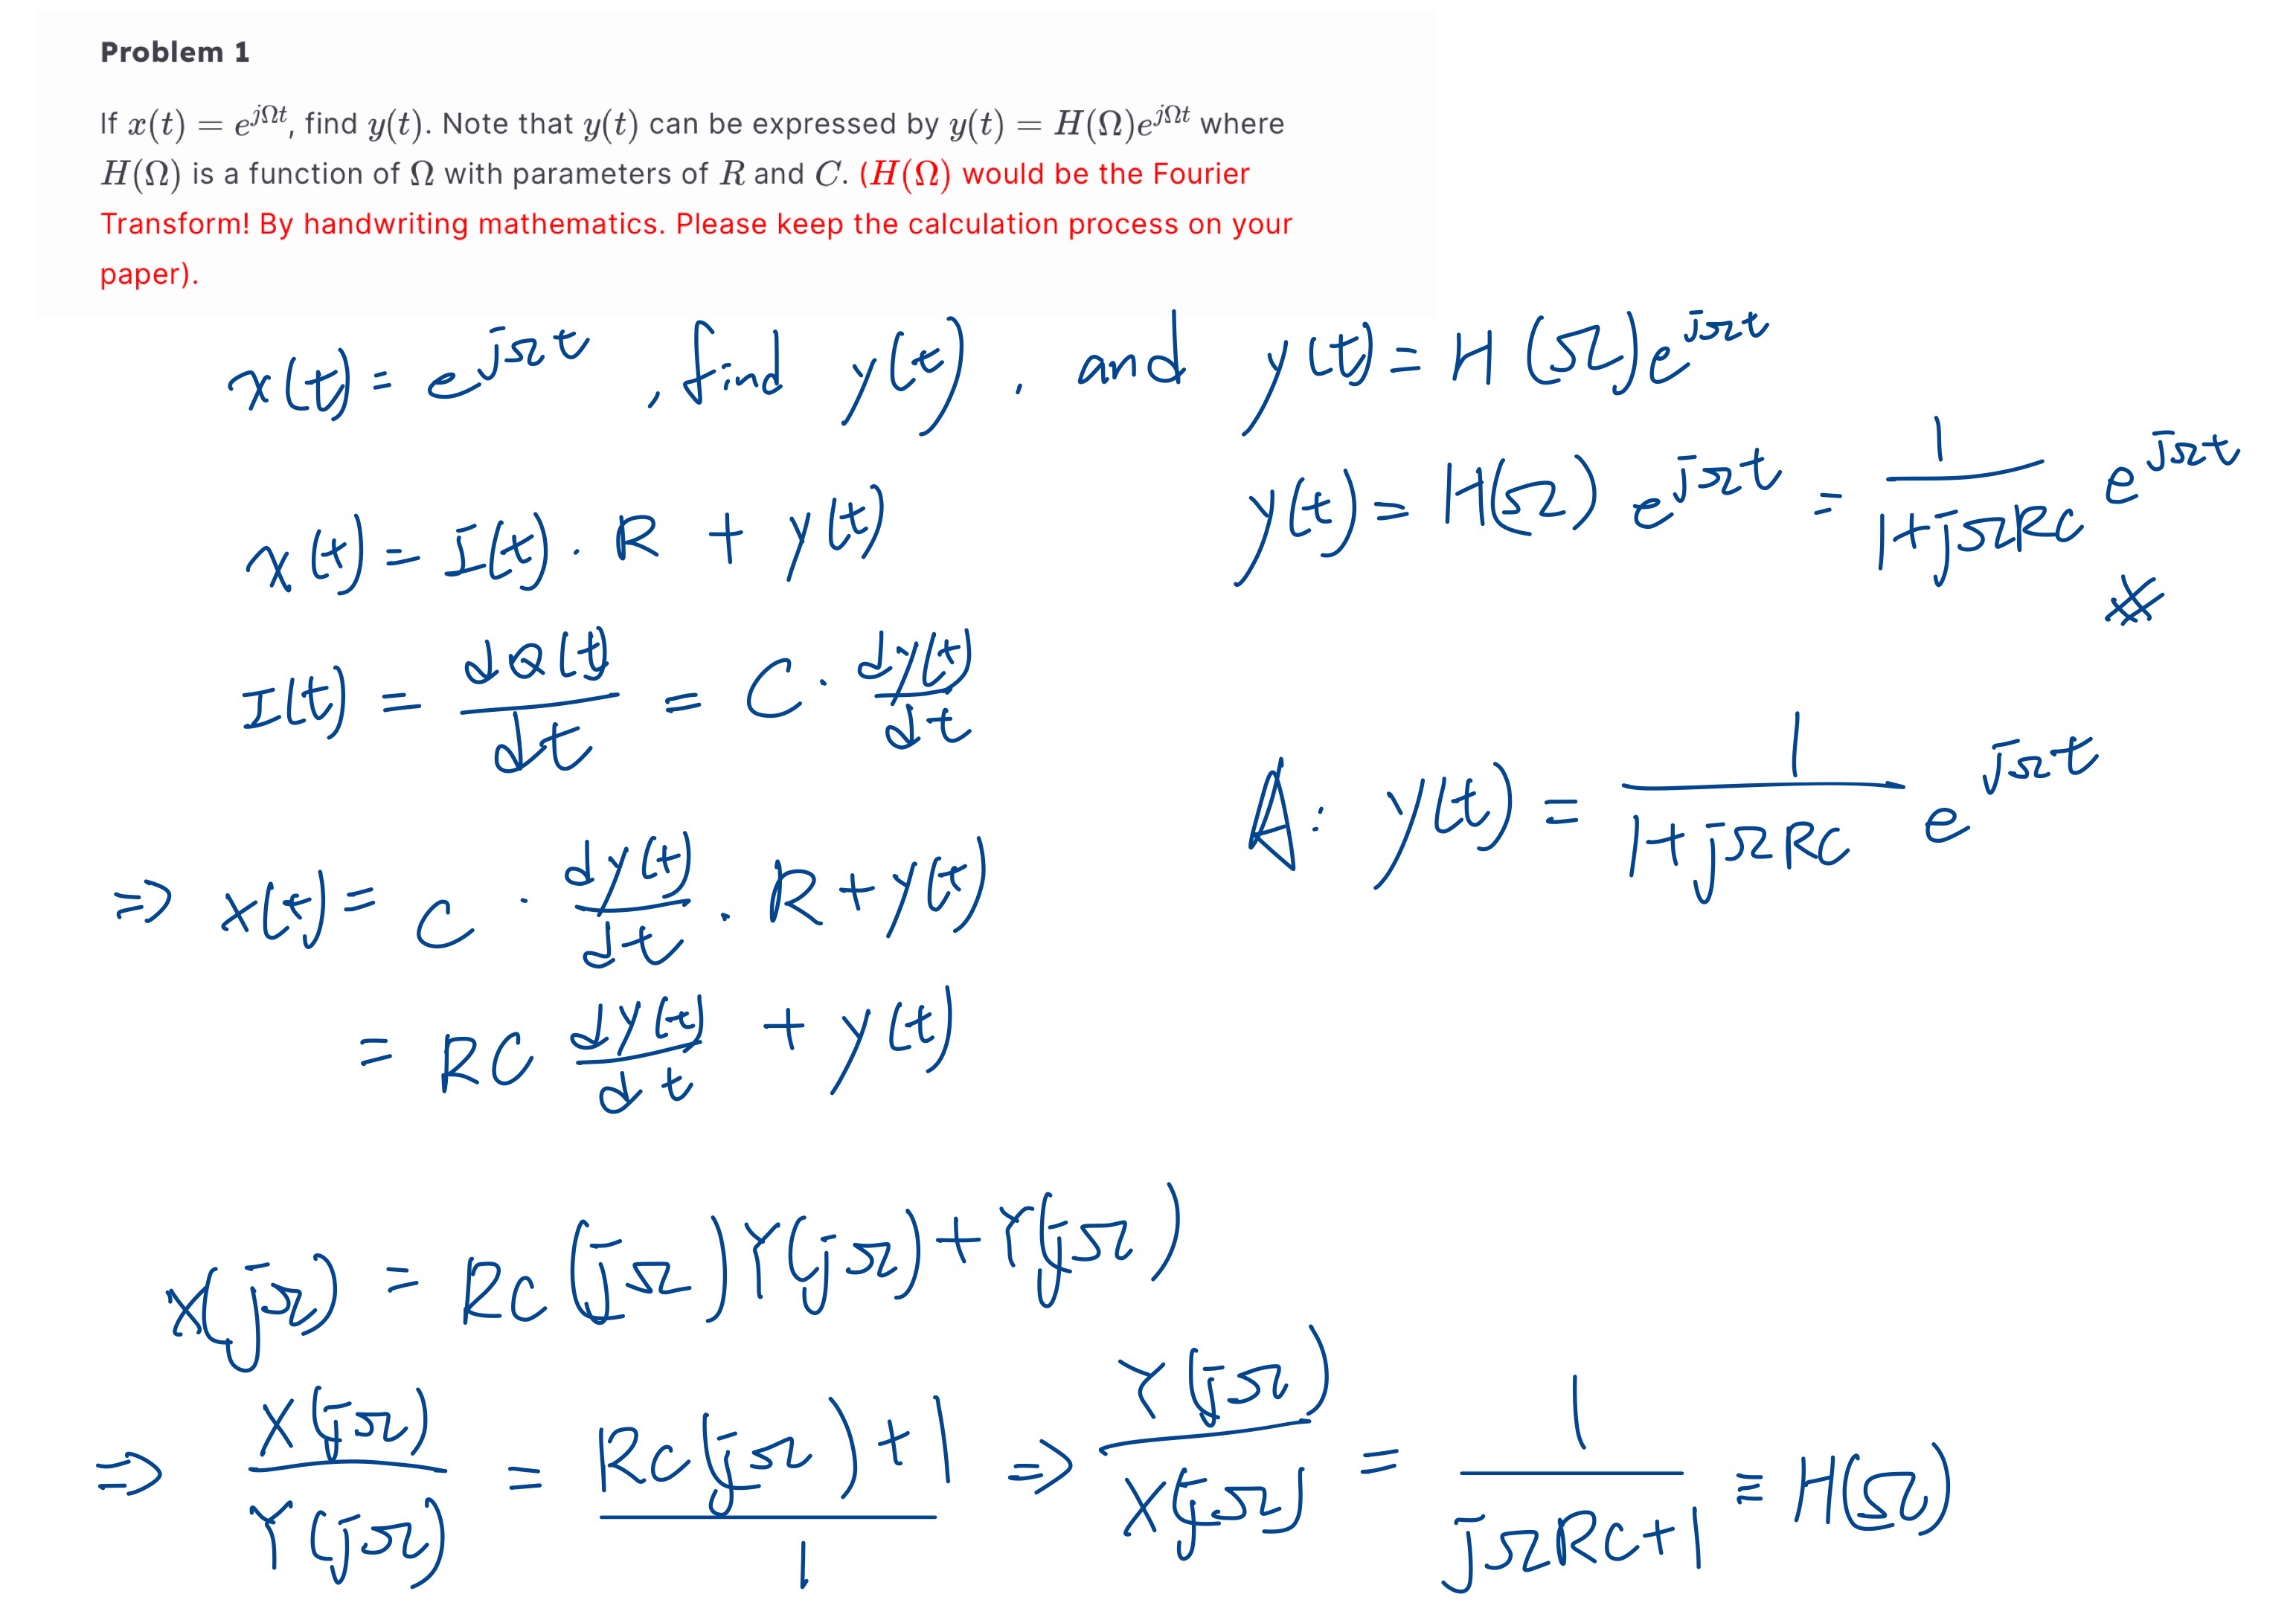 Problem 1
If x(t) = e^{jΩt}, find y(t). Note that y(t) can be expressed by y(t) = H(Ω)e^{jΩt} where
H(Ω) is a function of Ω with parameters of R and C. (H(Ω) would be the Fourier
Transform! By handwriting mathematics. Please keep the calculation process on your
paper).
x(t) = e^{jΩt}, find y(t), and y(t) = H(Ω)e^{jΩt}
x(t) = I(t) · R + y(t)
I(t) = dQ(t)/dt = C · dy(t)/dt
⇒ x(t) = C · dy(t)/dt · R + y(t)
= RC dy(t)/dt + y(t)
X(jΩ) = RC(jΩ)Y(jΩ) + Y(jΩ)
⇒ X(jΩ)/Y(jΩ) = (RC(jΩ) + 1)/1 ⇒ Y(jΩ)/X(jΩ) = 1/(jΩRC + 1) ≡ H(Ω)
y(t) = H(Ω) e^{jΩt} = 1/(1 + jΩRC) e^{jΩt}
A: y(t) = 1/(1 + jΩRC) e^{jΩt}